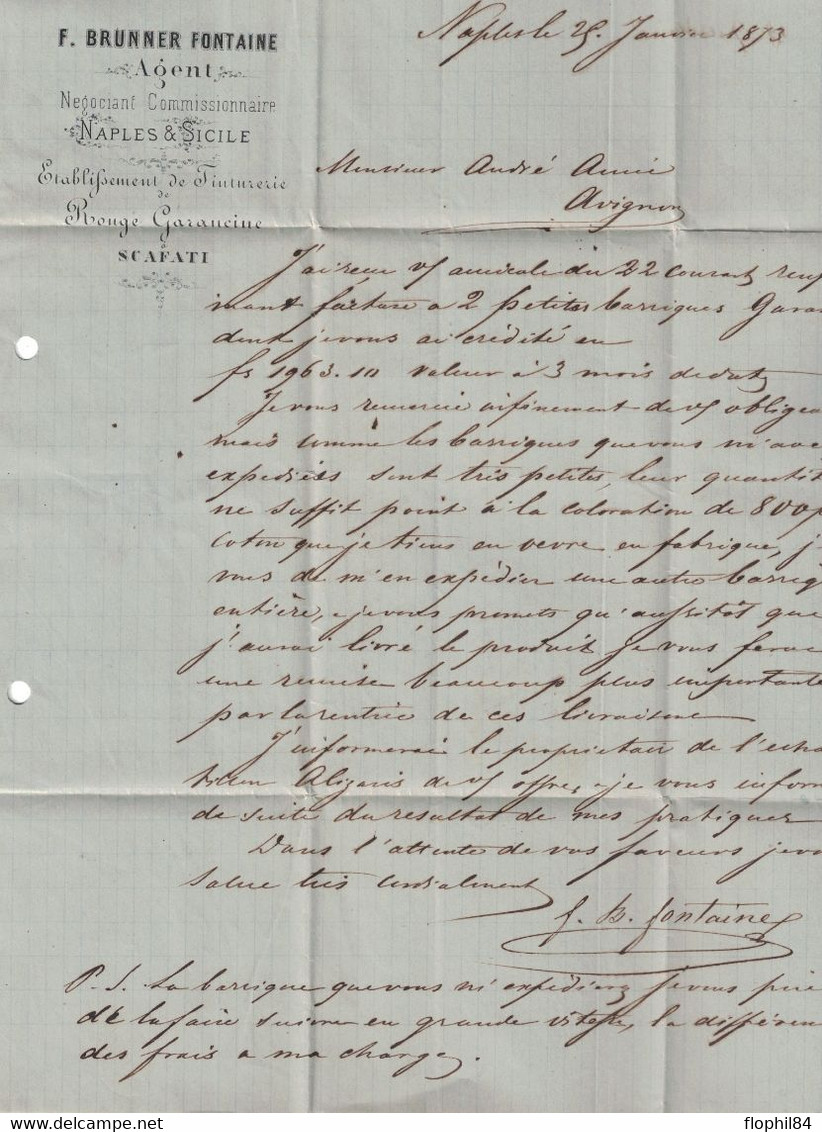 F. BRUNNER FONTAINE
Agent
Negociant Commissionnaire
NAPLES & SICILE
Etablissement de Tinturerie
de
Rouge Garancine
à
SCAFATI
Naples le 25 Janvier 1873
Monsieur André Amic
Avignon
J'ai reçu v/ amicale du 22 courant renf
imant facture a 2 petites barriques Garan
dont je vous ai crédité en
fs 1963.10 valeur à 3 mois de date
Je vous remercie infiniment de v/ obligea
mais comme les barriques que vous m'ave
expediées sont très petites, leur quantit
ne suffit point à la coloration de 800
coton que je tiens en oevre en fabrique, j
vous de m'en expédier une autre barriq
entière, e je vous promets qu'aussitôt que
j'aurai livré le produit je vous ferai
une remise beaucoup plus importante
par la rentrée de ces livraisons
J'informerai le proprietair de l'echa
tillon Alizaris de v/ offre, e je vous inform
de suite du resultat de mes pratiques
Dans l'attente de vos faveurs je vo
salue très cordialement
f. B. fontaine
P.S. La barrique que vous m'expédierez je vous prie
de la faire suivre en grande vitesse, la différen
des frais a ma charge.
www.delcampe.net
flophil84